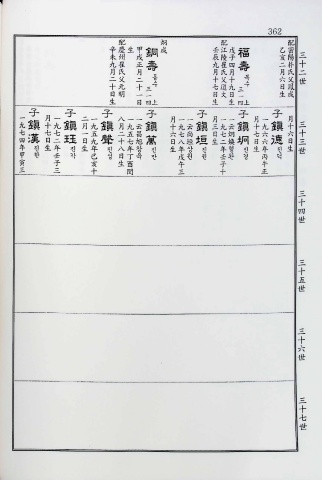 362
三十二世
配密陽朴氏父鳳成
乙亥二月六日生
福壽 복수 三一四上
戊子四月十九日生
配江陵崔氏父道文
壬辰九月十七日生
銅壽 동수 三一四上
甲戌正月二十一日
生
配慶州崔氏父元明
辛未九月二十日生
三十三世
月十六日生
子鎭德 진덕
一九六六年丙午正
月十七日生
子鎭坰 진경
一九七二年壬子十
月三日生
子鎭垣 진원
一九七八年戊午三
月十六日生
子鎭萬 진만
一九五七年丁酉閏
八月二十八日生
子鎭聲 진성
一九五九年己亥十
二月一日生
子鎭珏 진각
一九七二年壬子三
月十七日生
子鎭漢 진한
一九七四年甲寅三
三十四世
三十五世
三十六世
三十七世